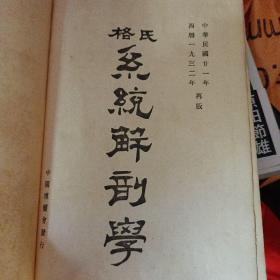 中華民國廿一年
西曆一九三二年
再版
格氏
系統解剖學
中國博醫會發行